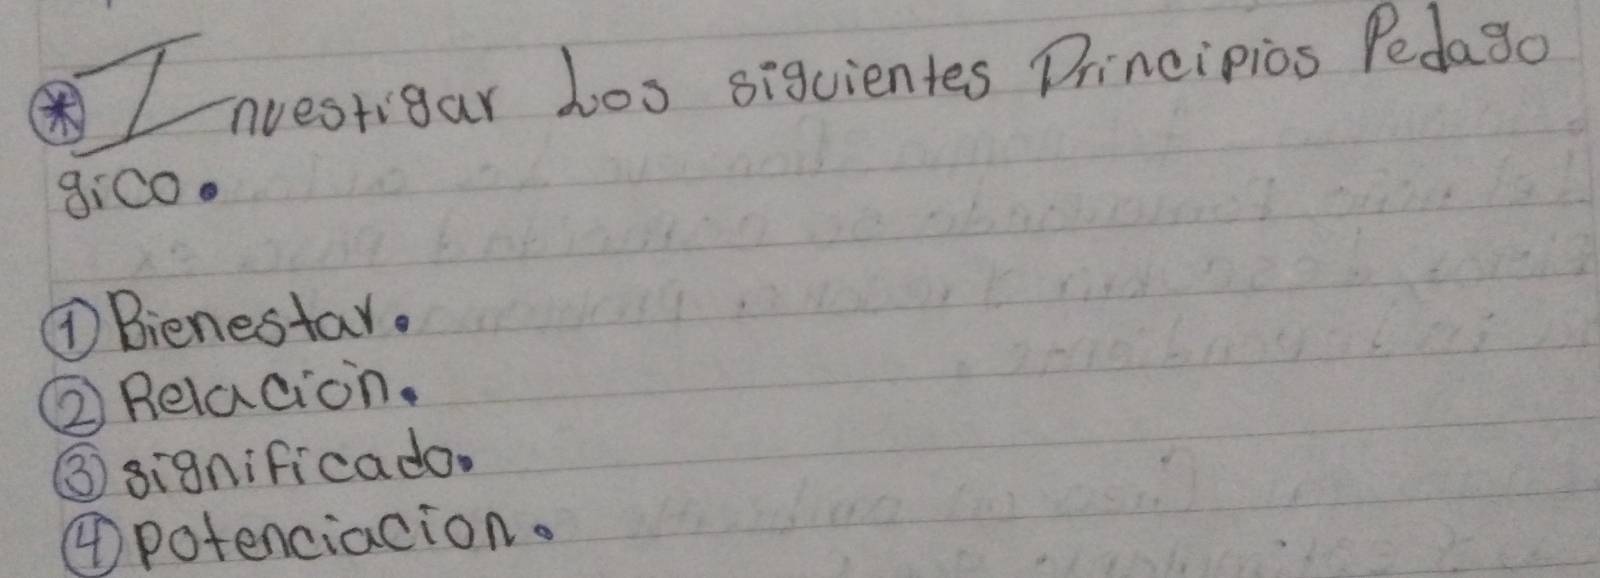 * Investigar Los siguientes Principios Pedago
gico.
1 Bienestar.
2 Relación.
3 significado.
4 potenciacion.